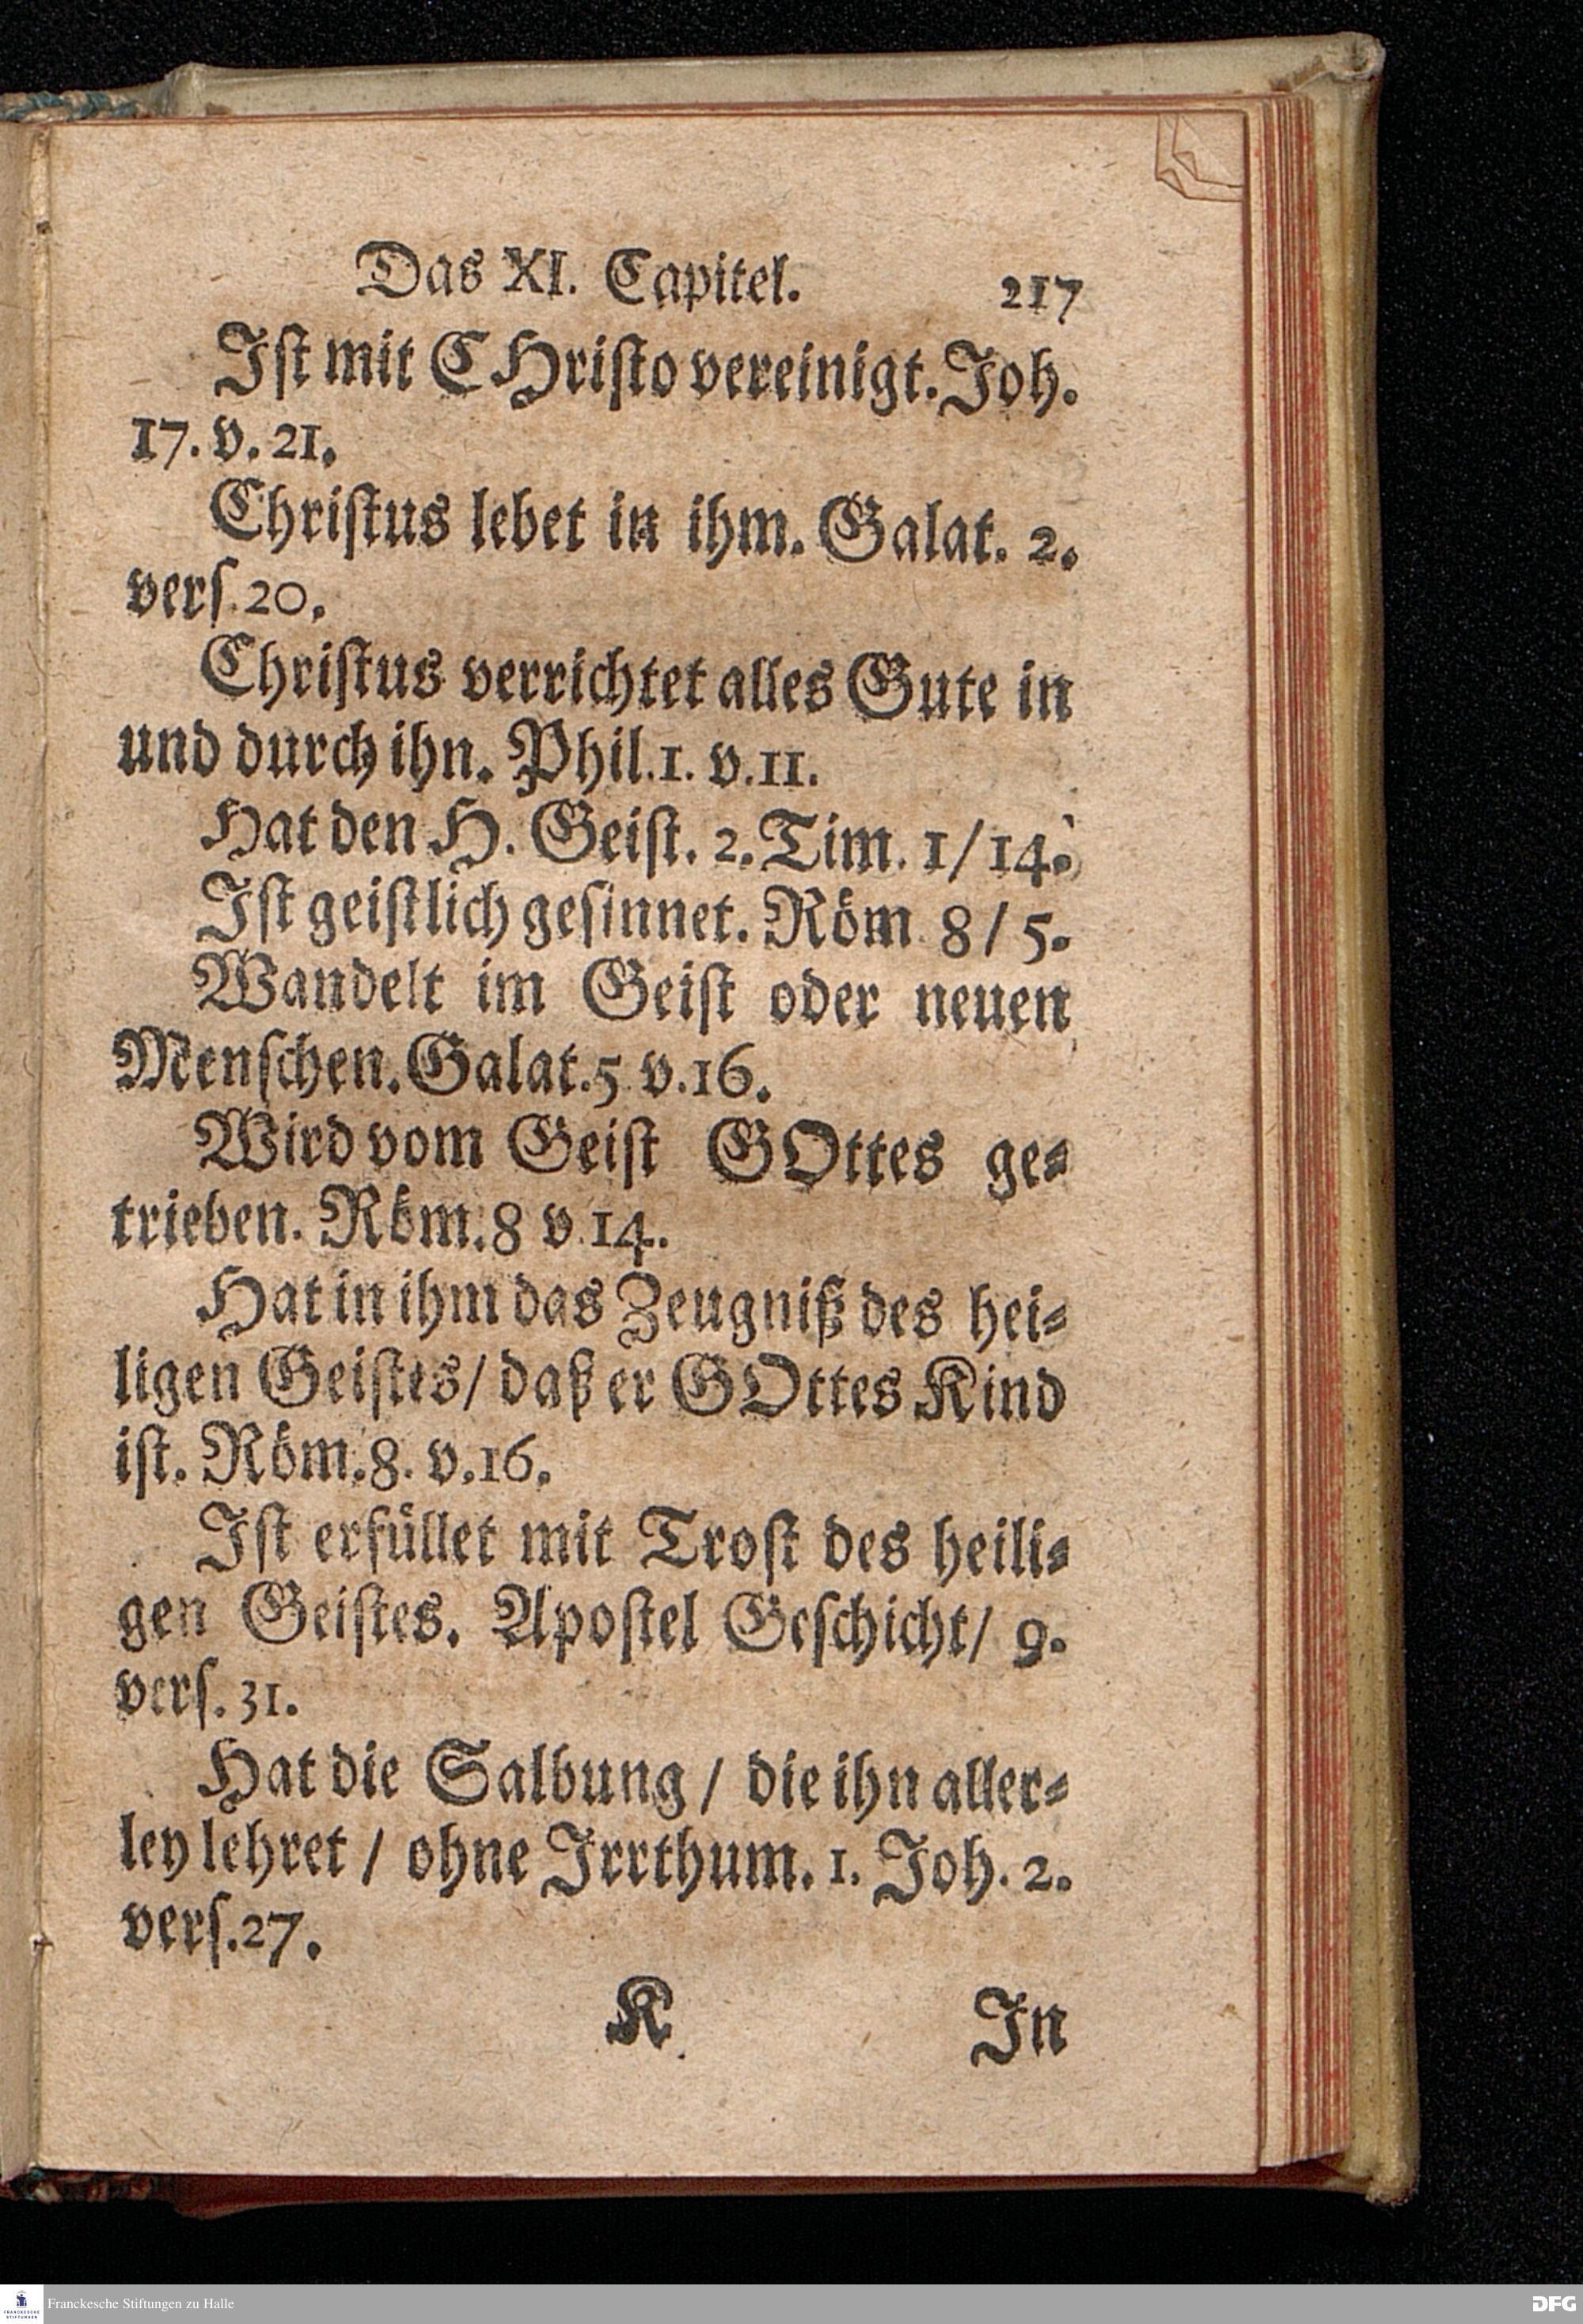 Das XI. Capitel. 217
Iſt mit CHriſto vereinigt. Joh.
17. v. 21.
Chriſtus lebet in ihm. Galat. 2.
verſ. 20.
Chriſtus verrichtet alles Gute in
und durch ihn. Phil. 1. v. 11.
Hat den H. Geiſt. 2. Tim. 1/14.
Iſt geiſtlich geſinnet. Röm 8/5.
Wandelt im Geiſt oder neuen
Menſchen. Galat. 5 v. 16.
Wird vom Geiſt GOttes ge-
trieben. Röm. 8 v. 14.
Hat in ihm das Zeugniß des hei-
ligen Geiſtes/ daß er GOttes Kind
iſt. Röm. 8. v. 16.
Iſt erfüllet mit Troſt des heili-
gen Geiſtes. Apoſtel Geſchicht/ 9.
verſ. 31.
Hat die Salbung / die ihn aller-
ley lehret / ohne Irrthum. 1. Joh. 2.
verſ. 27.
K In
FRANCKESCHE
STIFTUNGEN
Franckesche Stiftungen zu Halle
DFG